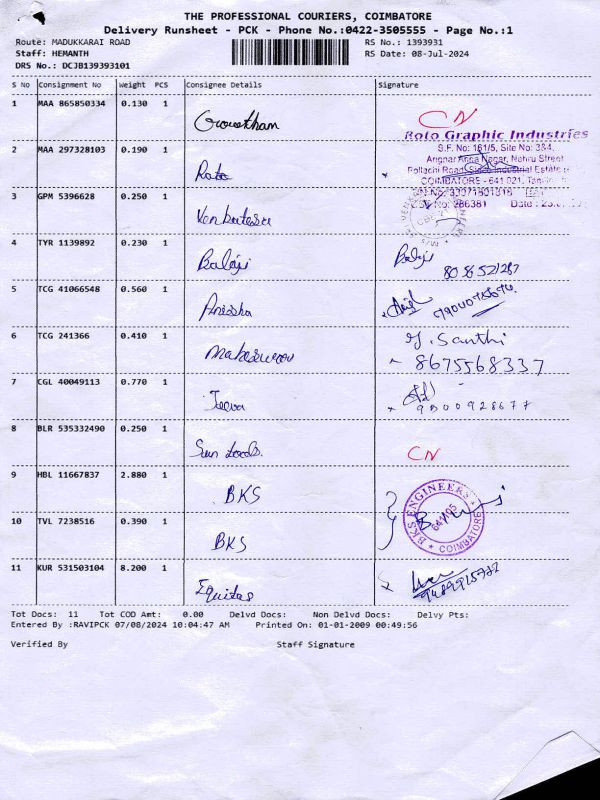 THE PROFESSIONAL COURIERS, COIMBATORE
Delivery Runsheet - PCK - Phone No.:0422-3505555 - Page No.:1
Route: MADUKKARAI ROAD RS No.: 1393931
Staff: HEMANTH RS Date: 08-Jul-2024
DRS No.: DCJB139393101
S No Consignment No Weight PCS Consignee Details Signature
1 MAA 865850334 0.130 1 Gowtham CN
Roto Graphic Industries
S.F. No: 161/5, Site No: 3&4,
Angnar Anna Nagar, Nehru Street
Pollachi Road, Industrial Estate
COIMBATORE - 641 021,
2 MAA 297328103 0.190 1 Roto
3 GPM 5396628 0.250 1 Venkatesa
4 TYR 1139892 0.230 1 Balaji Balaji
5 TCG 41066548 0.560 1 Anissha
6 TCG 241366 0.410 1 Maheswari Santhi
8675568337
7 CGL 40049113 0.770 1 Jeeva
9500928677
8 BLR 535332490 0.250 1 Sun CN
9 HBL 11667837 2.880 1 BKS
BKS ENGINEERS
COIMBATORE
10 TVL 7238516 0.390 1 BKS
11 KUR 531503104 8.200 1 Equitas
Tot Docs: 11 Tot COD Amt: 0.00 Delvd Docs: Non Delvd Docs: Delvy Pts:
Entered By :RAVIPCK 07/08/2024 10:04:47 AM Printed On: 01-01-2009 00:49:56
Verified By Staff Signature